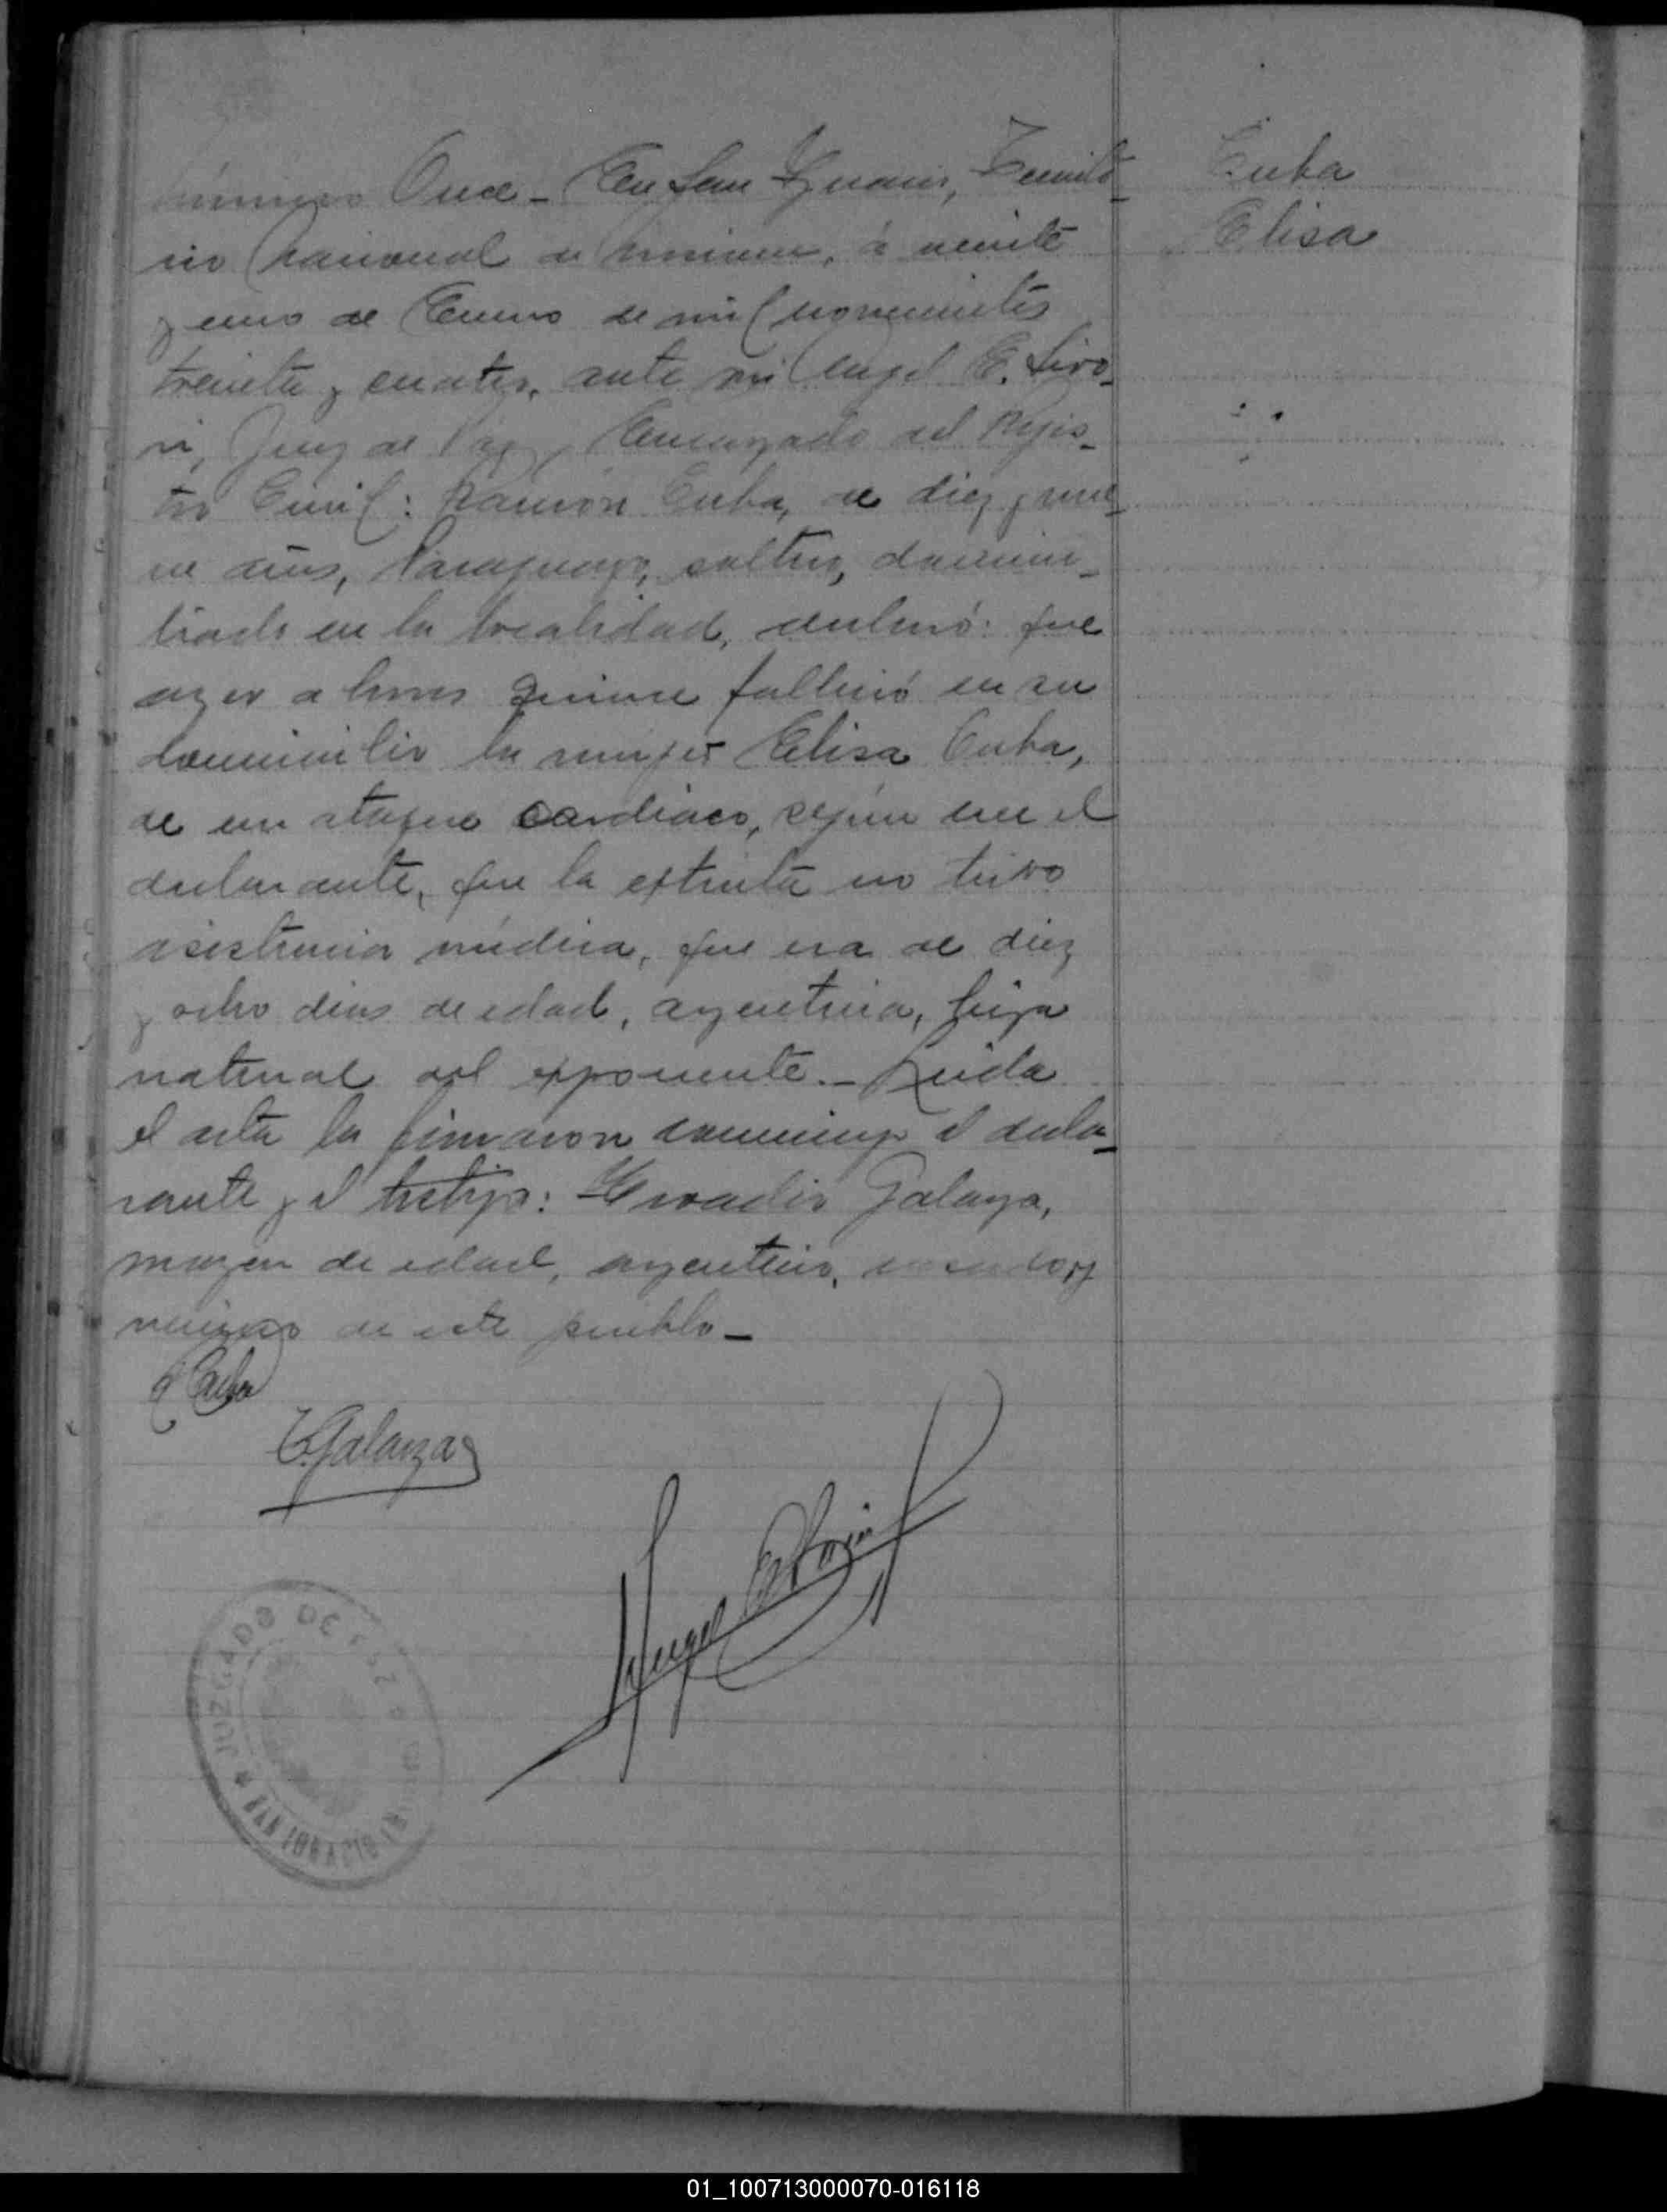 número Once - En San Ignacio, Territo-
rio Nacional de Misiones, á veinte
y uno de Enero de mil novecientos
treinta y cuatro, ante mi Angel E.
Juez de Paz, Encargado del Regis-
tro Civil: Ramón Cuba, de diez y nue-
ve años, Paraguayo, soltero, domici-
liado en la localidad, declaró: que
ayer a horas quince falleció en su
domicilio la mujer Elisa Cuba,
de un ataque cardiaco, según cree el
declarante, que la extinta no tuvo
asistencia médica, que era de diez
y ocho dias de edad, argentina, hija
natural del exponente.- Leida
el acta la firmaron conmigo el decla-
rante y el testigo: Galarza,
mayor de edad, argentino, casado, y
vecino de este pueblo -
R Cuba
Galarza
Angel E
JUZGADO DE PAZ
SAN IGNACIO
Cuba
Elisa
01_100713000070-016118